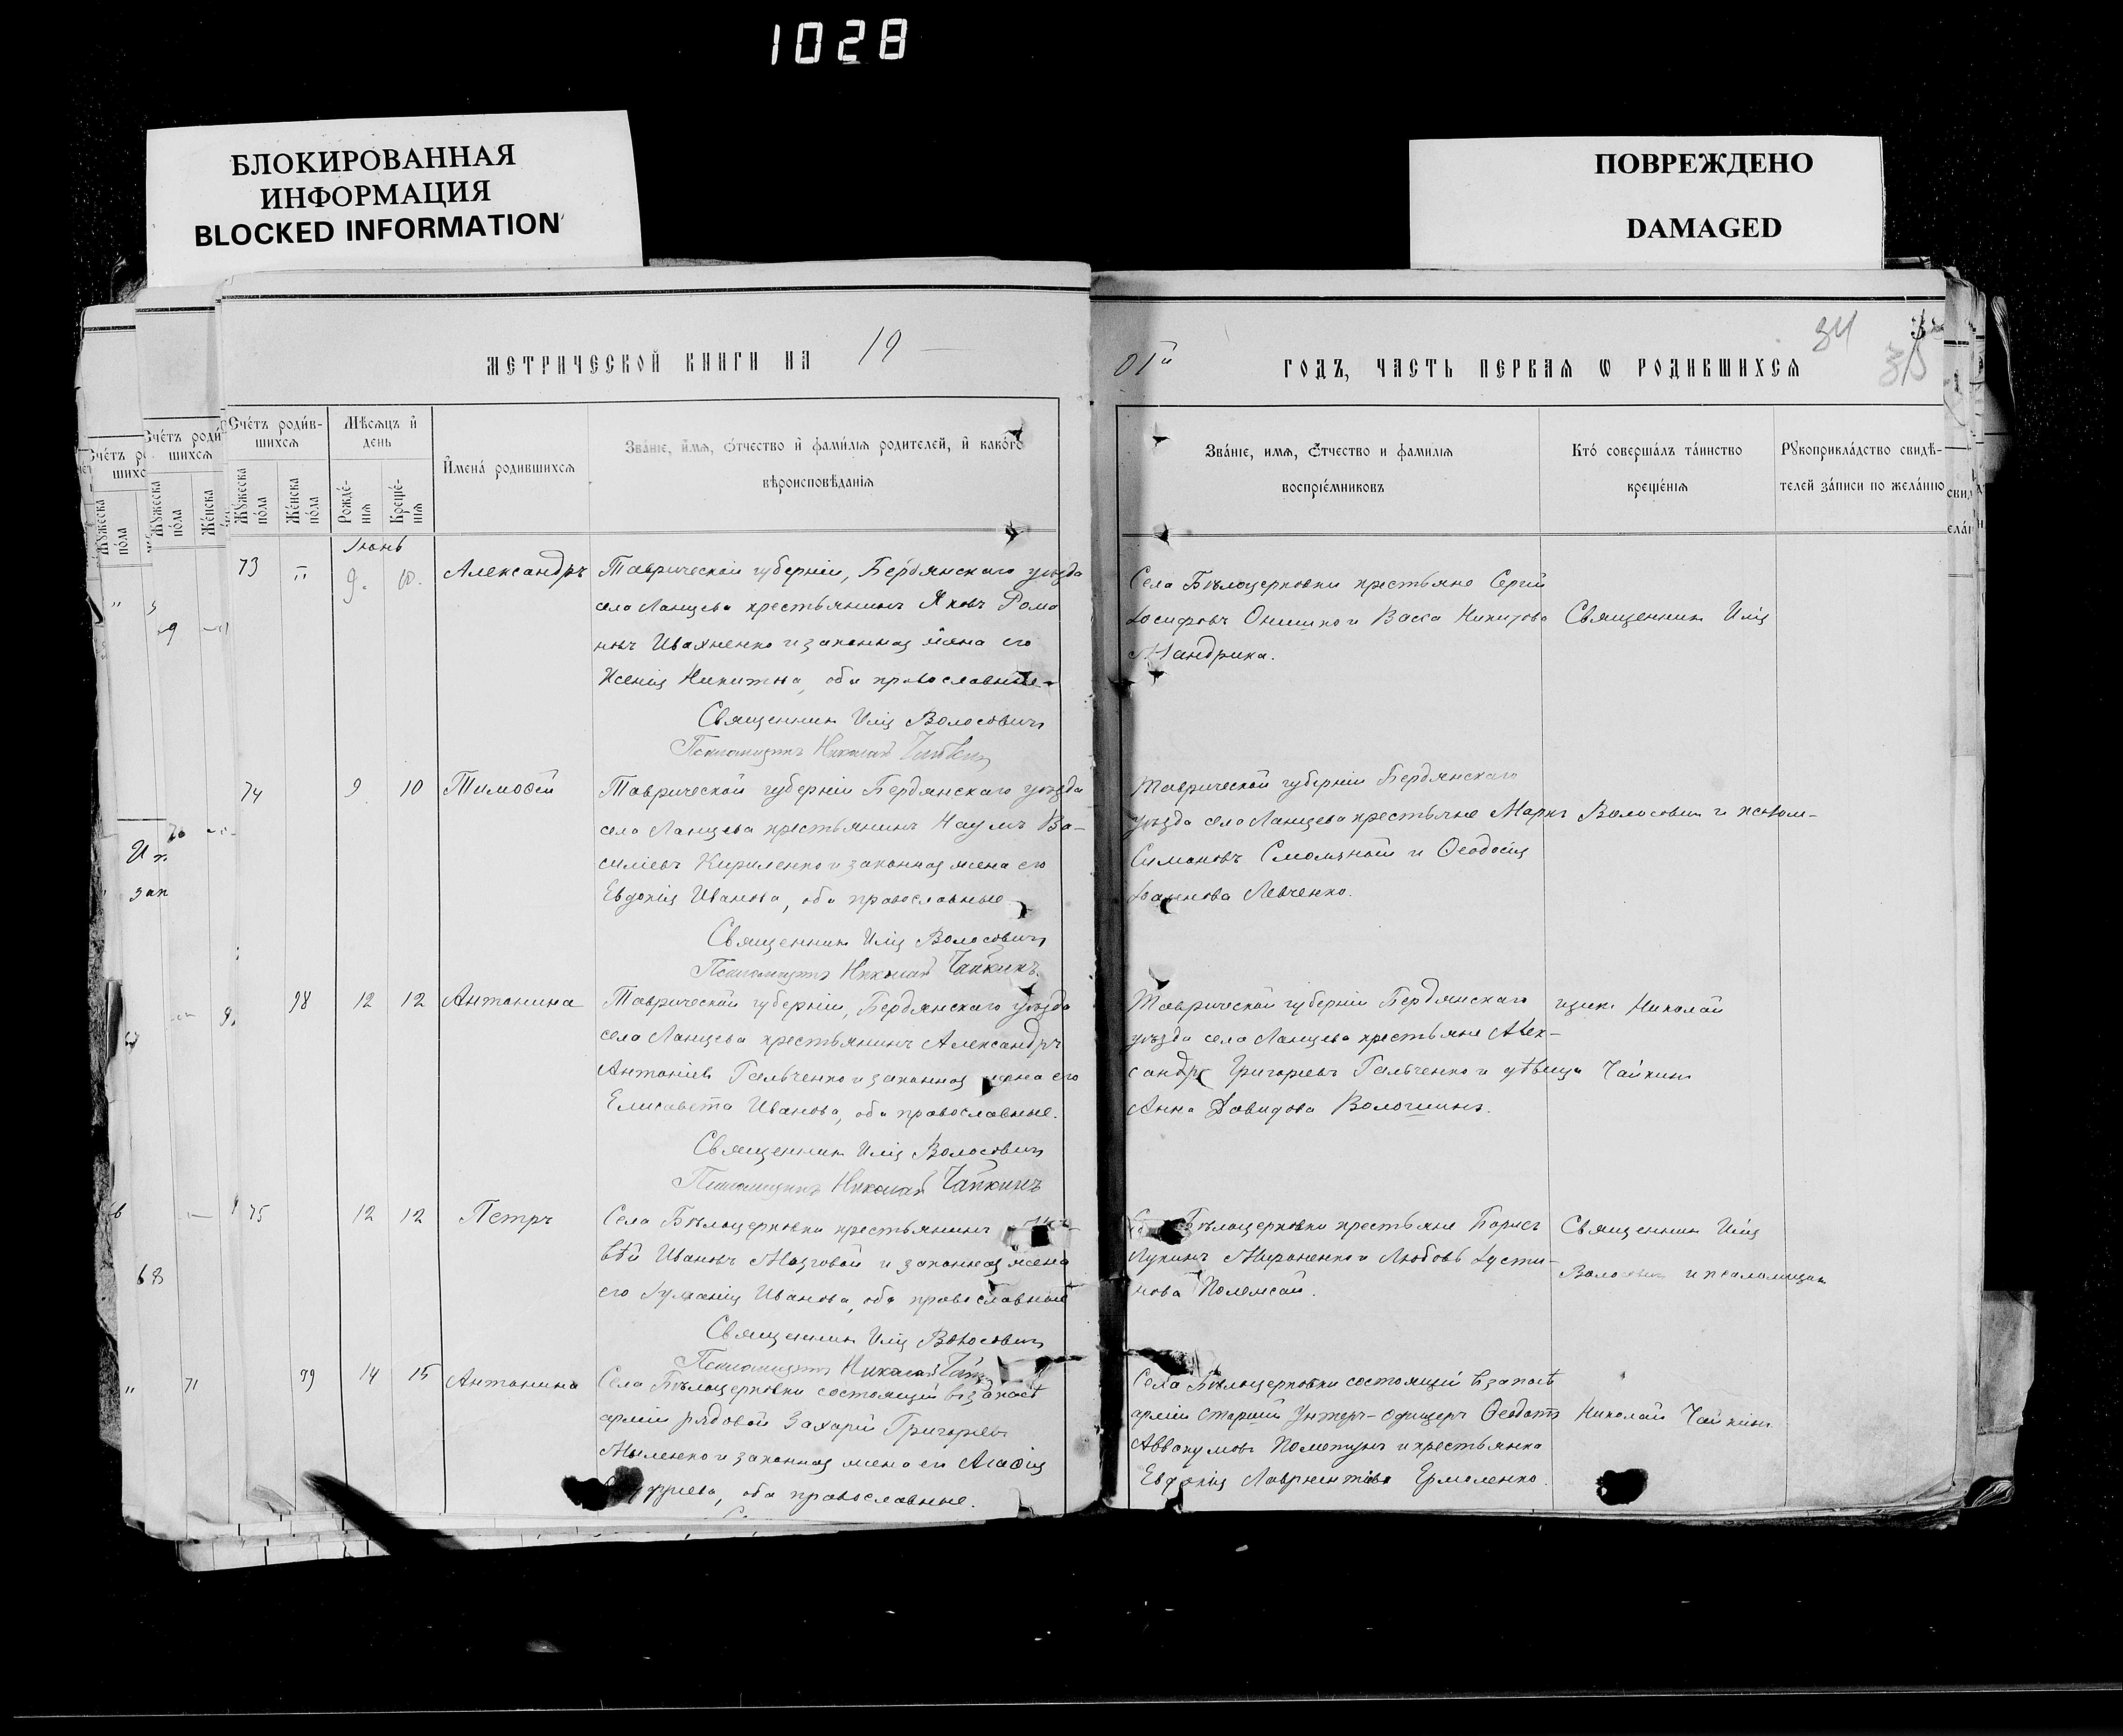 1028
БЛОКИРОВАННАЯ
ИНФОРМАЦИЯ
BLOCKED INFORMATION
ПОВРЕЖДЕНО
DAMAGED
МЕТРИЧЕСКОЙ КНИГИ НА 19
Счетъ родившихся
Мѣсяцъ и день
Имена родившихся
Званіе, имя, отчество и фамилія родителей, и какого
вѣроисповѣданія
Мужеска пола
Женска пола
Рожденія
Крещенія
Іюнь
73 " 9. 10. Александръ
Таврической губерніи, Бердянскаго уѣзда
села Ланцева крестьянинъ Яковъ Рома
новъ Ивахненко и законная жена его
Ксенія Никитина, оба православные
Священник Илія Волосович
Псаломщикъ Николай
74 9 10 Тимофей
Таврической губерніи Бердянскаго уѣзда
села Ланцева крестьянинъ Наумъ Ва-
силіевъ Кириленко и законная жена его
Евдокія Иванова, оба православные
Священник Илія Волосович
Псаломщикъ Николай Чайкинъ
98 12 12 Антонина
Таврической губерніи, Бердянскаго уѣзда
села Ланцева крестьянинъ Александръ
Антоніевъ Гальченко и законная жена его
Елисавета Иванова, оба православные.
Священник Илія Волосович
Псаломщикъ Николай Чайкинъ
75 12 12 Петръ
Села Бѣлоцерковки крестьянинъ
вѣй Ивановъ Мозговой и законная жена
его Иванова, оба православные
Священник Илія Волосович
Псаломщикъ Николай
99 14 15 Антонина
Села Бѣлоцерковки состоящій въ запасѣ
арміи рядовой Захарій Григоріевъ
и законная жена его Агафія
оба православные.
01й
ГОДЪ, ЧАСТЬ ПЕРВАЯ Ѡ РОДИВШИХСЯ
34
35
Званіе, имя, Отчество и фамилія
воспріемниковъ
Кто совершалъ таинство
крещенія
Рукоприкладство свидѣ-
телей записи по желанію
Села Бѣлоцерковки крестьяне Сергій
Іосифовъ Онишко и Васса Никитова
Мандрика.
Священник Илія
Таврической губерніи Бердянскаго
уѣзда села Ланцева крестьяне Маркъ
Симоновъ Смоляной и Феодосія
Іоаннова Левченко.
Волосович и псалом-
Таврической губерніи Бердянскаго
уѣзда села Ланцева крестьяне Алек-
сандръ Григоріевъ Гальченко и дѣвица
Анна Давидова Волошинъ.
щик Николай
Чайкин
Бѣлоцерковки крестьяне Борисъ
Лукинъ Мироненко и Любовь Іусти-
нова
Священник Илія
Волосович и псаломщик
Села Бѣлоцерковки состоящій въ запасѣ
арміи старшій унтеръ-офицеръ Феодотъ
Аввакумовъ и крестьянка
Евдокія Лаврентіева Ермоленко.
Николай Чайкин